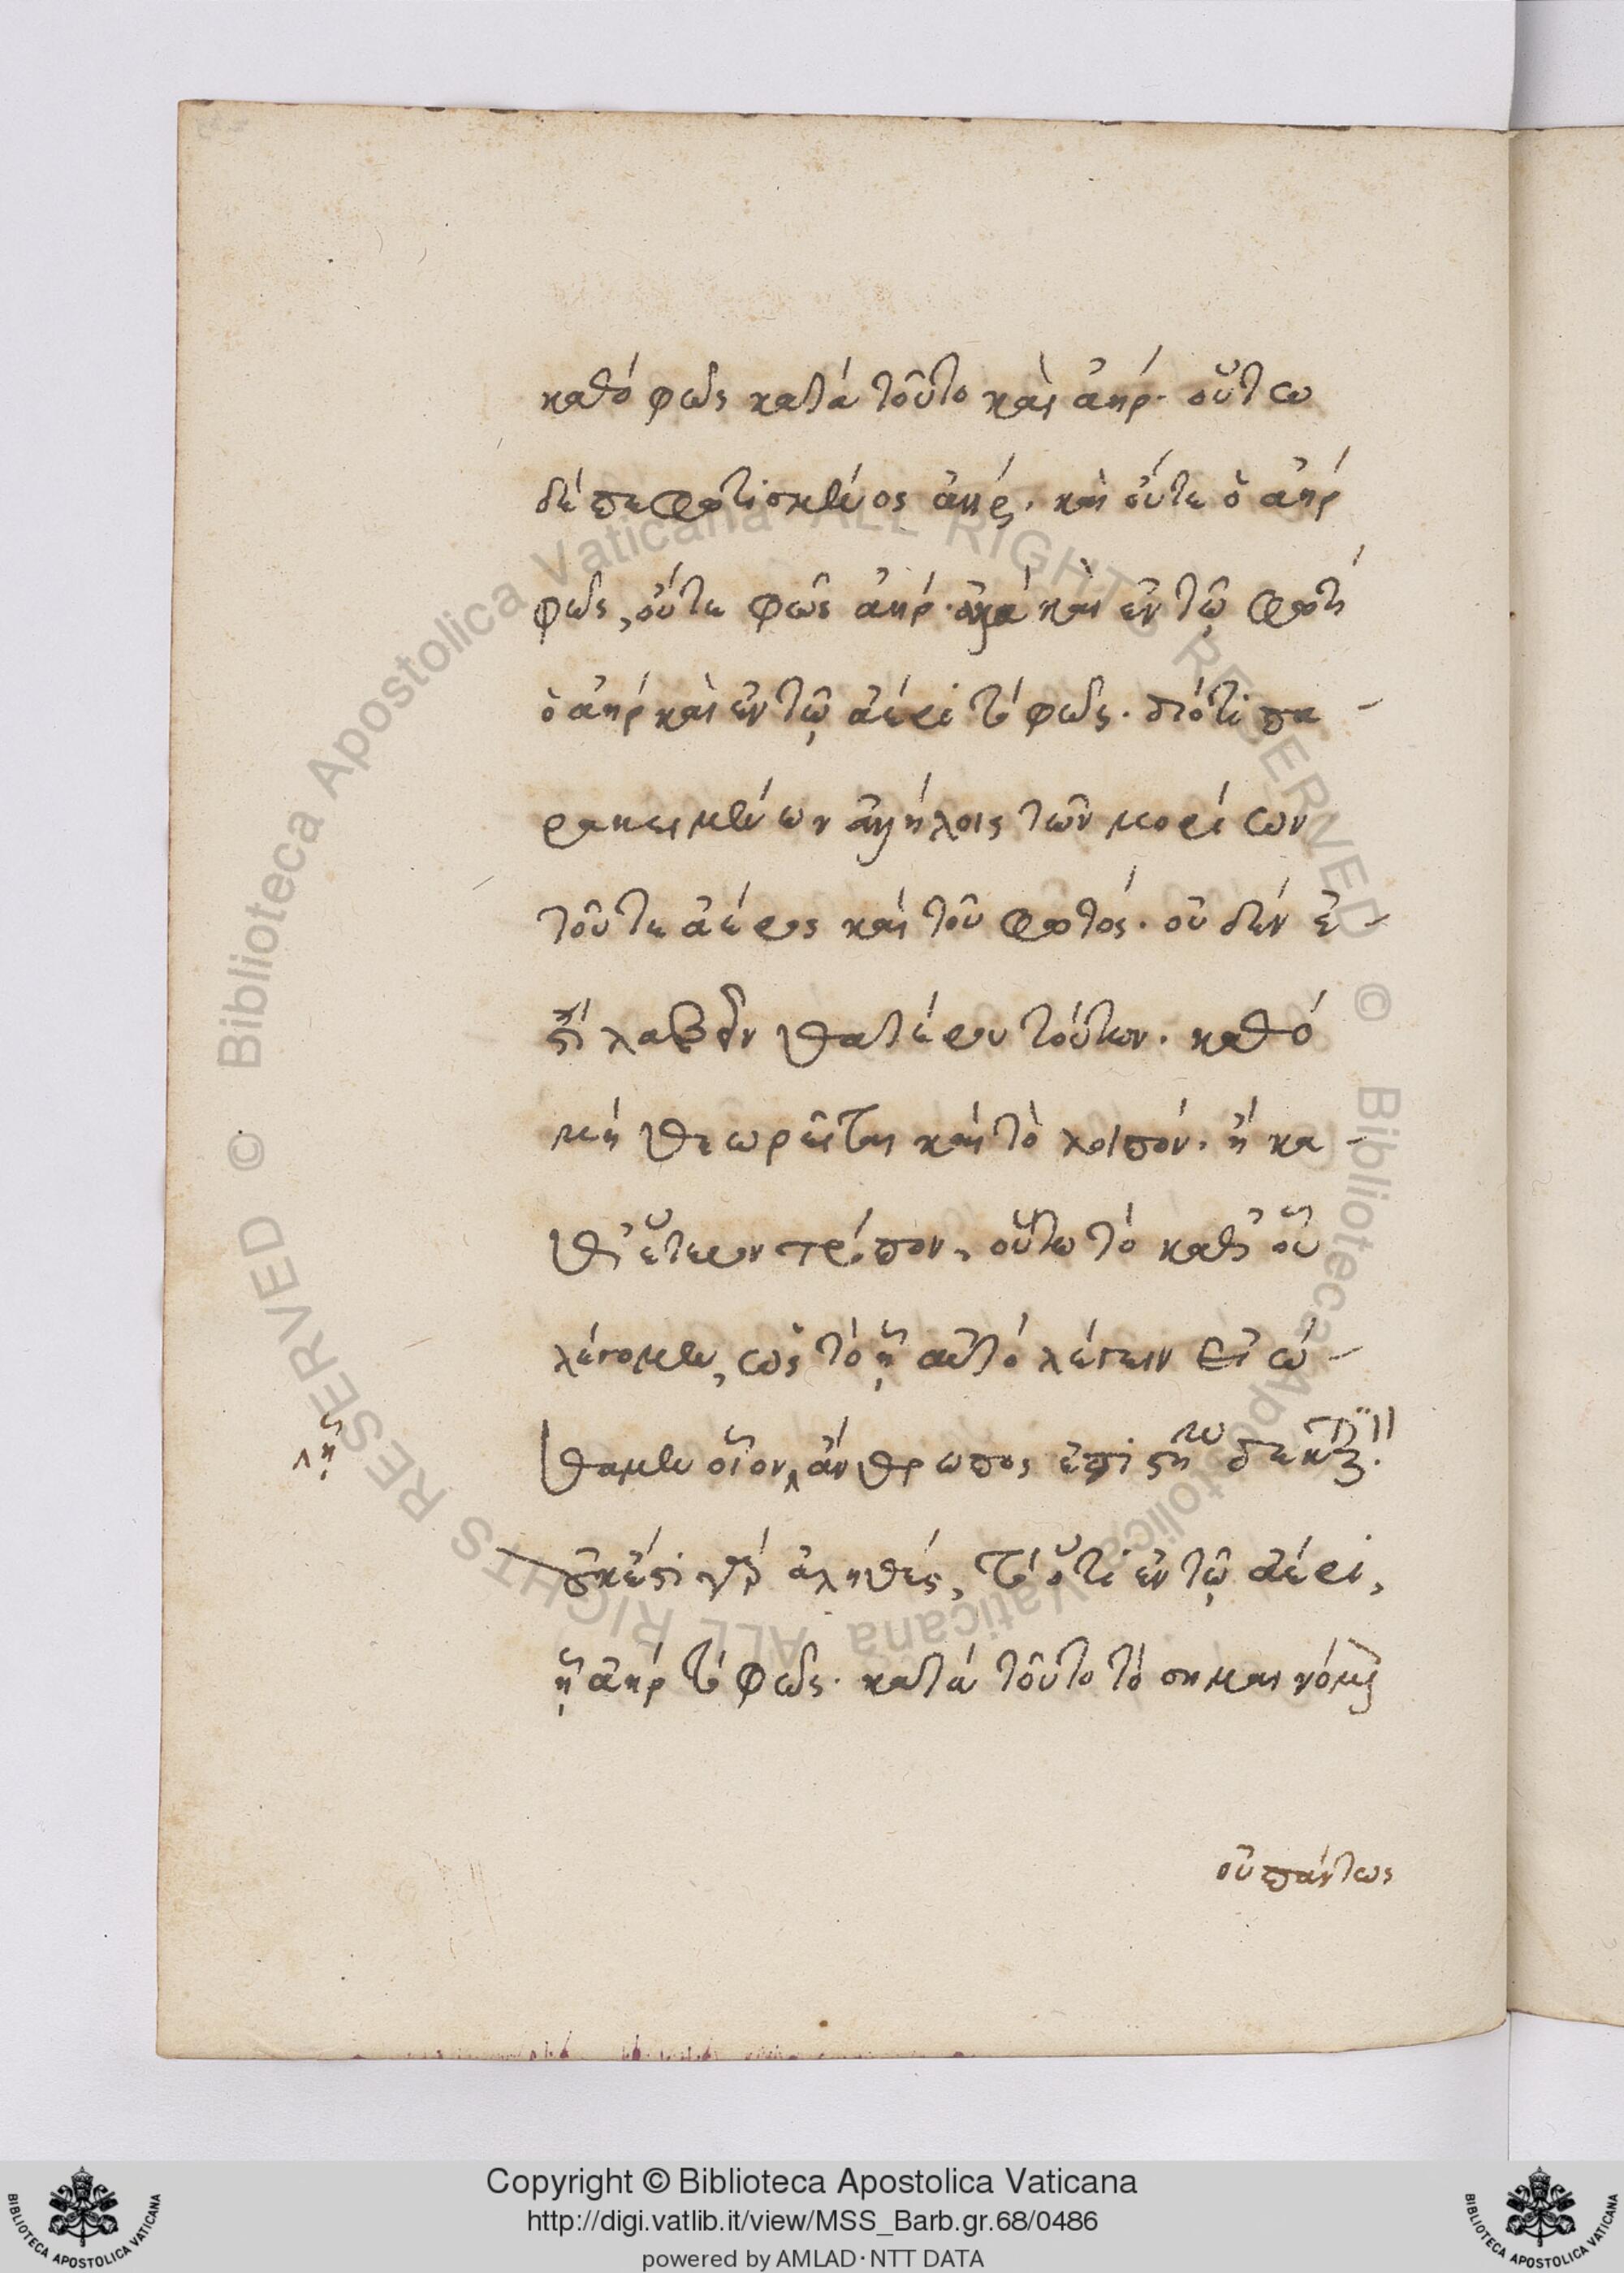 καθό φῶς κατά τοῦτο καὶ ἀήρ· οὕτω
δέ πεφωτισμένος ἀήρ· καὶ οὔτε ὁ ἀήρ
φῶς, οὔτε φῶς ἀήρ· ἀλλά καὶ ἐν τῷ φωτί
ὁ ἀήρ καὶ ἐν τῷ ἀέρι τό φῶς· διότι πα-
ρακειμένων ἀλλήλοις τῶν μορίων
τοῦ τε ἀέρος καὶ τοῦ φωτός· οὐδέν ἐ-
στί λαβεῖν θατέρου τούτων· καθό
μή θεωρεῖται καὶ τὸ λοιπόν· ἤ κα-
θ' ἕτερον τρόπον, οὕτω τό καθ' οὗ
λέγομεν, ὡς τό ᾗ αὐτό λέγειν εἰώ-
θαμεν οἷον ἄνθρωπος ἐπιστήμων
ᾗ
οὐκέτι γάρ ἀληθές, τό ὅτι ἐν τῷ ἀέρι,
ᾗ ἀήρ τό φῶς· κατά τοῦτο τό σημαινόμενον
οὐ πάντως
Copyright © Biblioteca Apostolica Vaticana
http://digi.vatlib.it/view/MSS_Barb.gr.68/0486
powered by AMLAD · NTT DATA
BIBLIOTECA APOSTOLICA VATICANA
BIBLIOTECA APOSTOLICA VATICANA
© Biblioteca Apostolica Vaticana ALL RIGHTS RESERVED
© Biblioteca Apostolica Vaticana ALL RIGHTS RESERVED